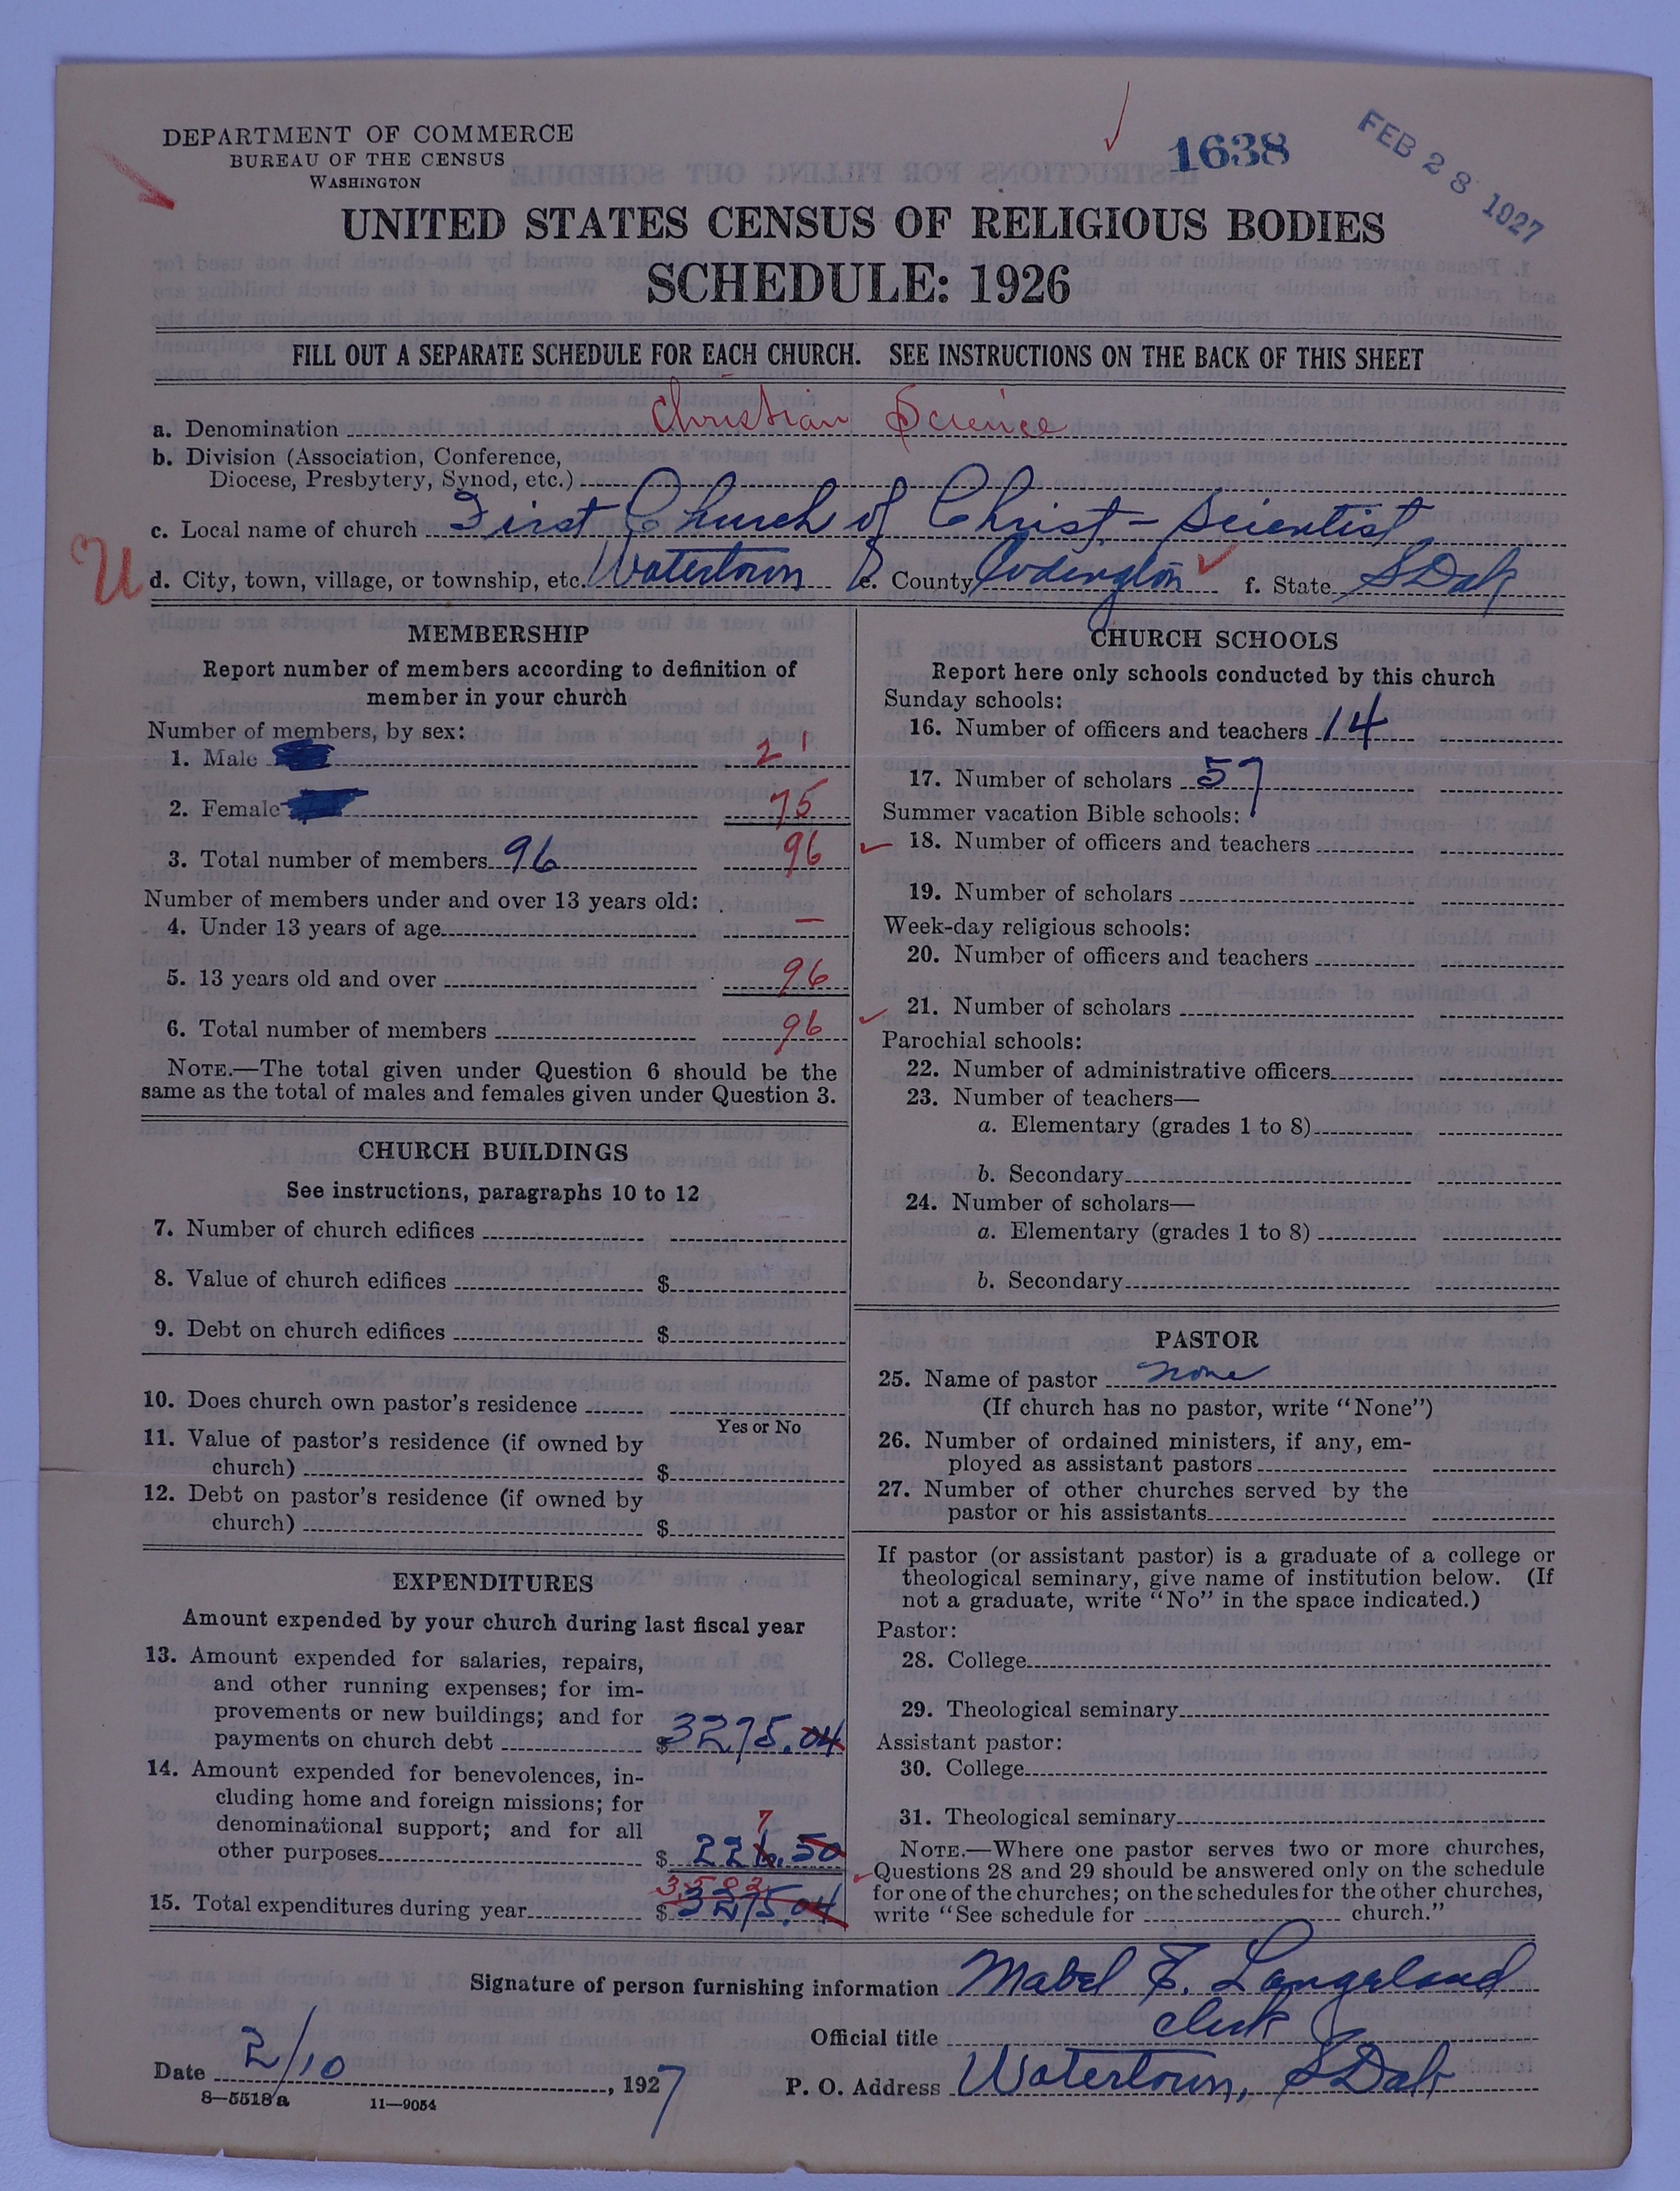 DEPARTMENT OF COMMERCE
BUREAU OF THE CENSUS
WASHINGTON
1638
FEB 28 1927
UNITED STATES CENSUS OF RELIGIOUS BODIES
SCHEDULE: 1926
FILL OUT A SEPARATE SCHEDULE FOR EACH CHURCH. SEE INSTRUCTIONS ON THE BACK OF THIS SHEET
a. Denomination Christian Science
b. Division (Association, Conference,
Diocese, Presbytery, Synod, etc.)
c. Local name of church First Church of Christ - Scientist
U d. City, town, village, or township, etc. Watertown e. County Codington f. State S Dak
MEMBERSHIP
Report number of members according to definition of
member in your church
Number of members, by sex:
1. Male 21
2. Female 75
3. Total number of members 96 96
Number of members under and over 13 years old:
4. Under 13 years of age —
5. 13 years old and over 96
6. Total number of members 96
NOTE.—The total given under Question 6 should be the
same as the total of males and females given under Question 3.
CHURCH BUILDINGS
See instructions, paragraphs 10 to 12
7. Number of church edifices
8. Value of church edifices $
9. Debt on church edifices $
10. Does church own pastor's residence
Yes or No
11. Value of pastor's residence (if owned by
church) $
12. Debt on pastor's residence (if owned by
church) $
EXPENDITURES
Amount expended by your church during last fiscal year
13. Amount expended for salaries, repairs,
and other running expenses; for im-
provements or new buildings; and for
payments on church debt $ 3275.04
14. Amount expended for benevolences, in-
cluding home and foreign missions; for
denominational support; and for all
7
other purposes $ 226.50
15. Total expenditures during year $ 3275.04
CHURCH SCHOOLS
Report here only schools conducted by this church
Sunday schools:
16. Number of officers and teachers 14
17. Number of scholars 57
Summer vacation Bible schools:
18. Number of officers and teachers
19. Number of scholars
Week-day religious schools:
20. Number of officers and teachers
21. Number of scholars
Parochial schools:
22. Number of administrative officers
23. Number of teachers—
a. Elementary (grades 1 to 8)
b. Secondary
24. Number of scholars—
a. Elementary (grades 1 to 8)
b. Secondary
PASTOR
25. Name of pastor none
(If church has no pastor, write "None")
26. Number of ordained ministers, if any, em-
ployed as assistant pastors
27. Number of other churches served by the
pastor or his assistants
If pastor (or assistant pastor) is a graduate of a college or
theological seminary, give name of institution below. (If
not a graduate, write "No" in the space indicated.)
Pastor:
28. College
29. Theological seminary
Assistant pastor:
30. College
31. Theological seminary
NOTE.—Where one pastor serves two or more churches,
Questions 28 and 29 should be answered only on the schedule
for one of the churches; on the schedules for the other churches,
write "See schedule for church."
Signature of person furnishing information Mabel F. Langeland
Official title Clerk
Date 2/10, 1927 P. O. Address Watertown, S Dak
8—5518 a 11—9054